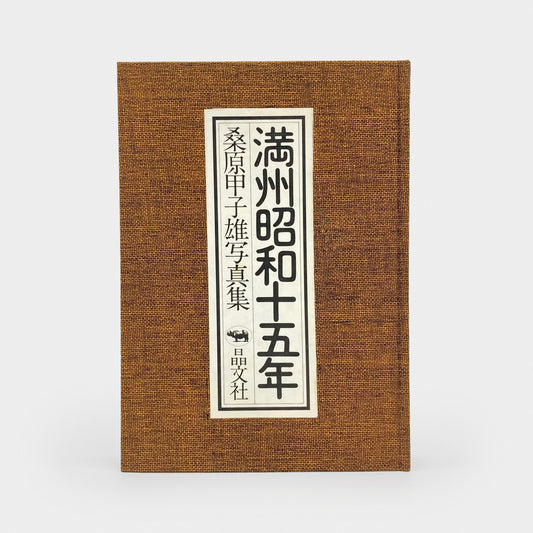 満州昭和十五年
桑原甲子雄写真集
晶文社